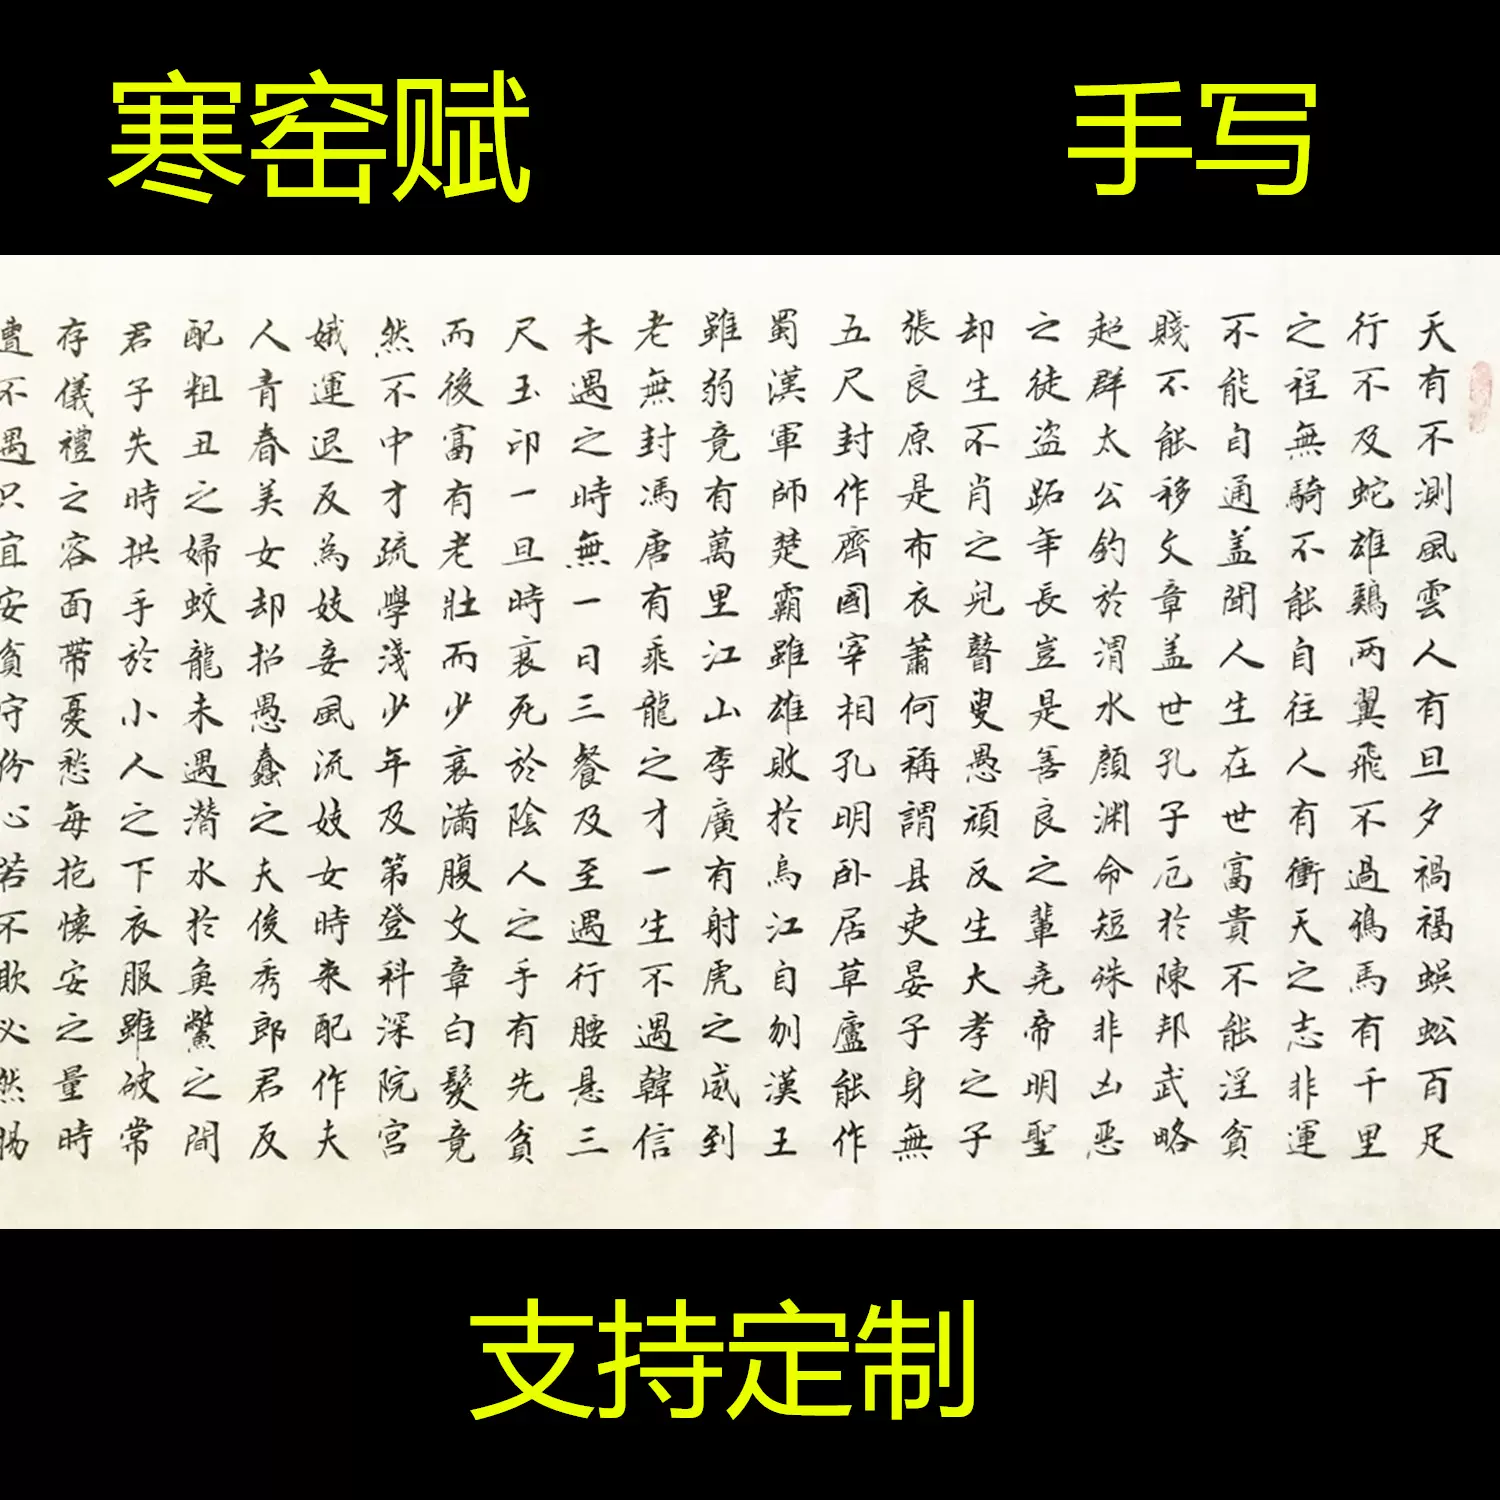 寒窑赋
手写
天有不測風雲人有旦夕禍福蜈蚣百足
行不及蛇雄鷄两翼飛不過鴉馬有千里
之程無騎不能自往人有衝天之志非運
不能自通盖聞人生在世富貴不能淫貧
賤不能移文章盖世孔子厄於陳邦武略
超群太公釣於渭水顏渊命短殊非凶恶
之徒盗跖年長豈是善良之輩尭帝明聖
却生不肖之兒瞽叟愚頑反生大孝之子
張良原是布衣蕭何稱謂县吏晏子身無
五尺封作齊國宰相孔明卧居草廬能作
蜀漢軍師楚霸雖雄敗於烏江自刎漢王
雖弱竟有萬里江山李廣有射虎之威到
老無封馮唐有乘龍之才一生不遇韓信
未遇之時無一日三餐及至遇行腰悬三
尺玉印一旦時衰死於陰人之手有先貧
而後富有老壯而少衰滿腹文章白髮竟
然不中才疏學淺少年及第登科深院宫
娥運退反為妓妾風流妓女時來配作夫
人青春美女却招愚蠢之夫俊秀郎君反
配粗丑之婦蛟龍未遇潜水於魚鱉之間
君子失時拱手於小人之下衣服雖破常
存儀禮之容面帶憂愁每抱懷安之量時
遭不遇只宜安貧守份心若不欺必然揚
支持定制